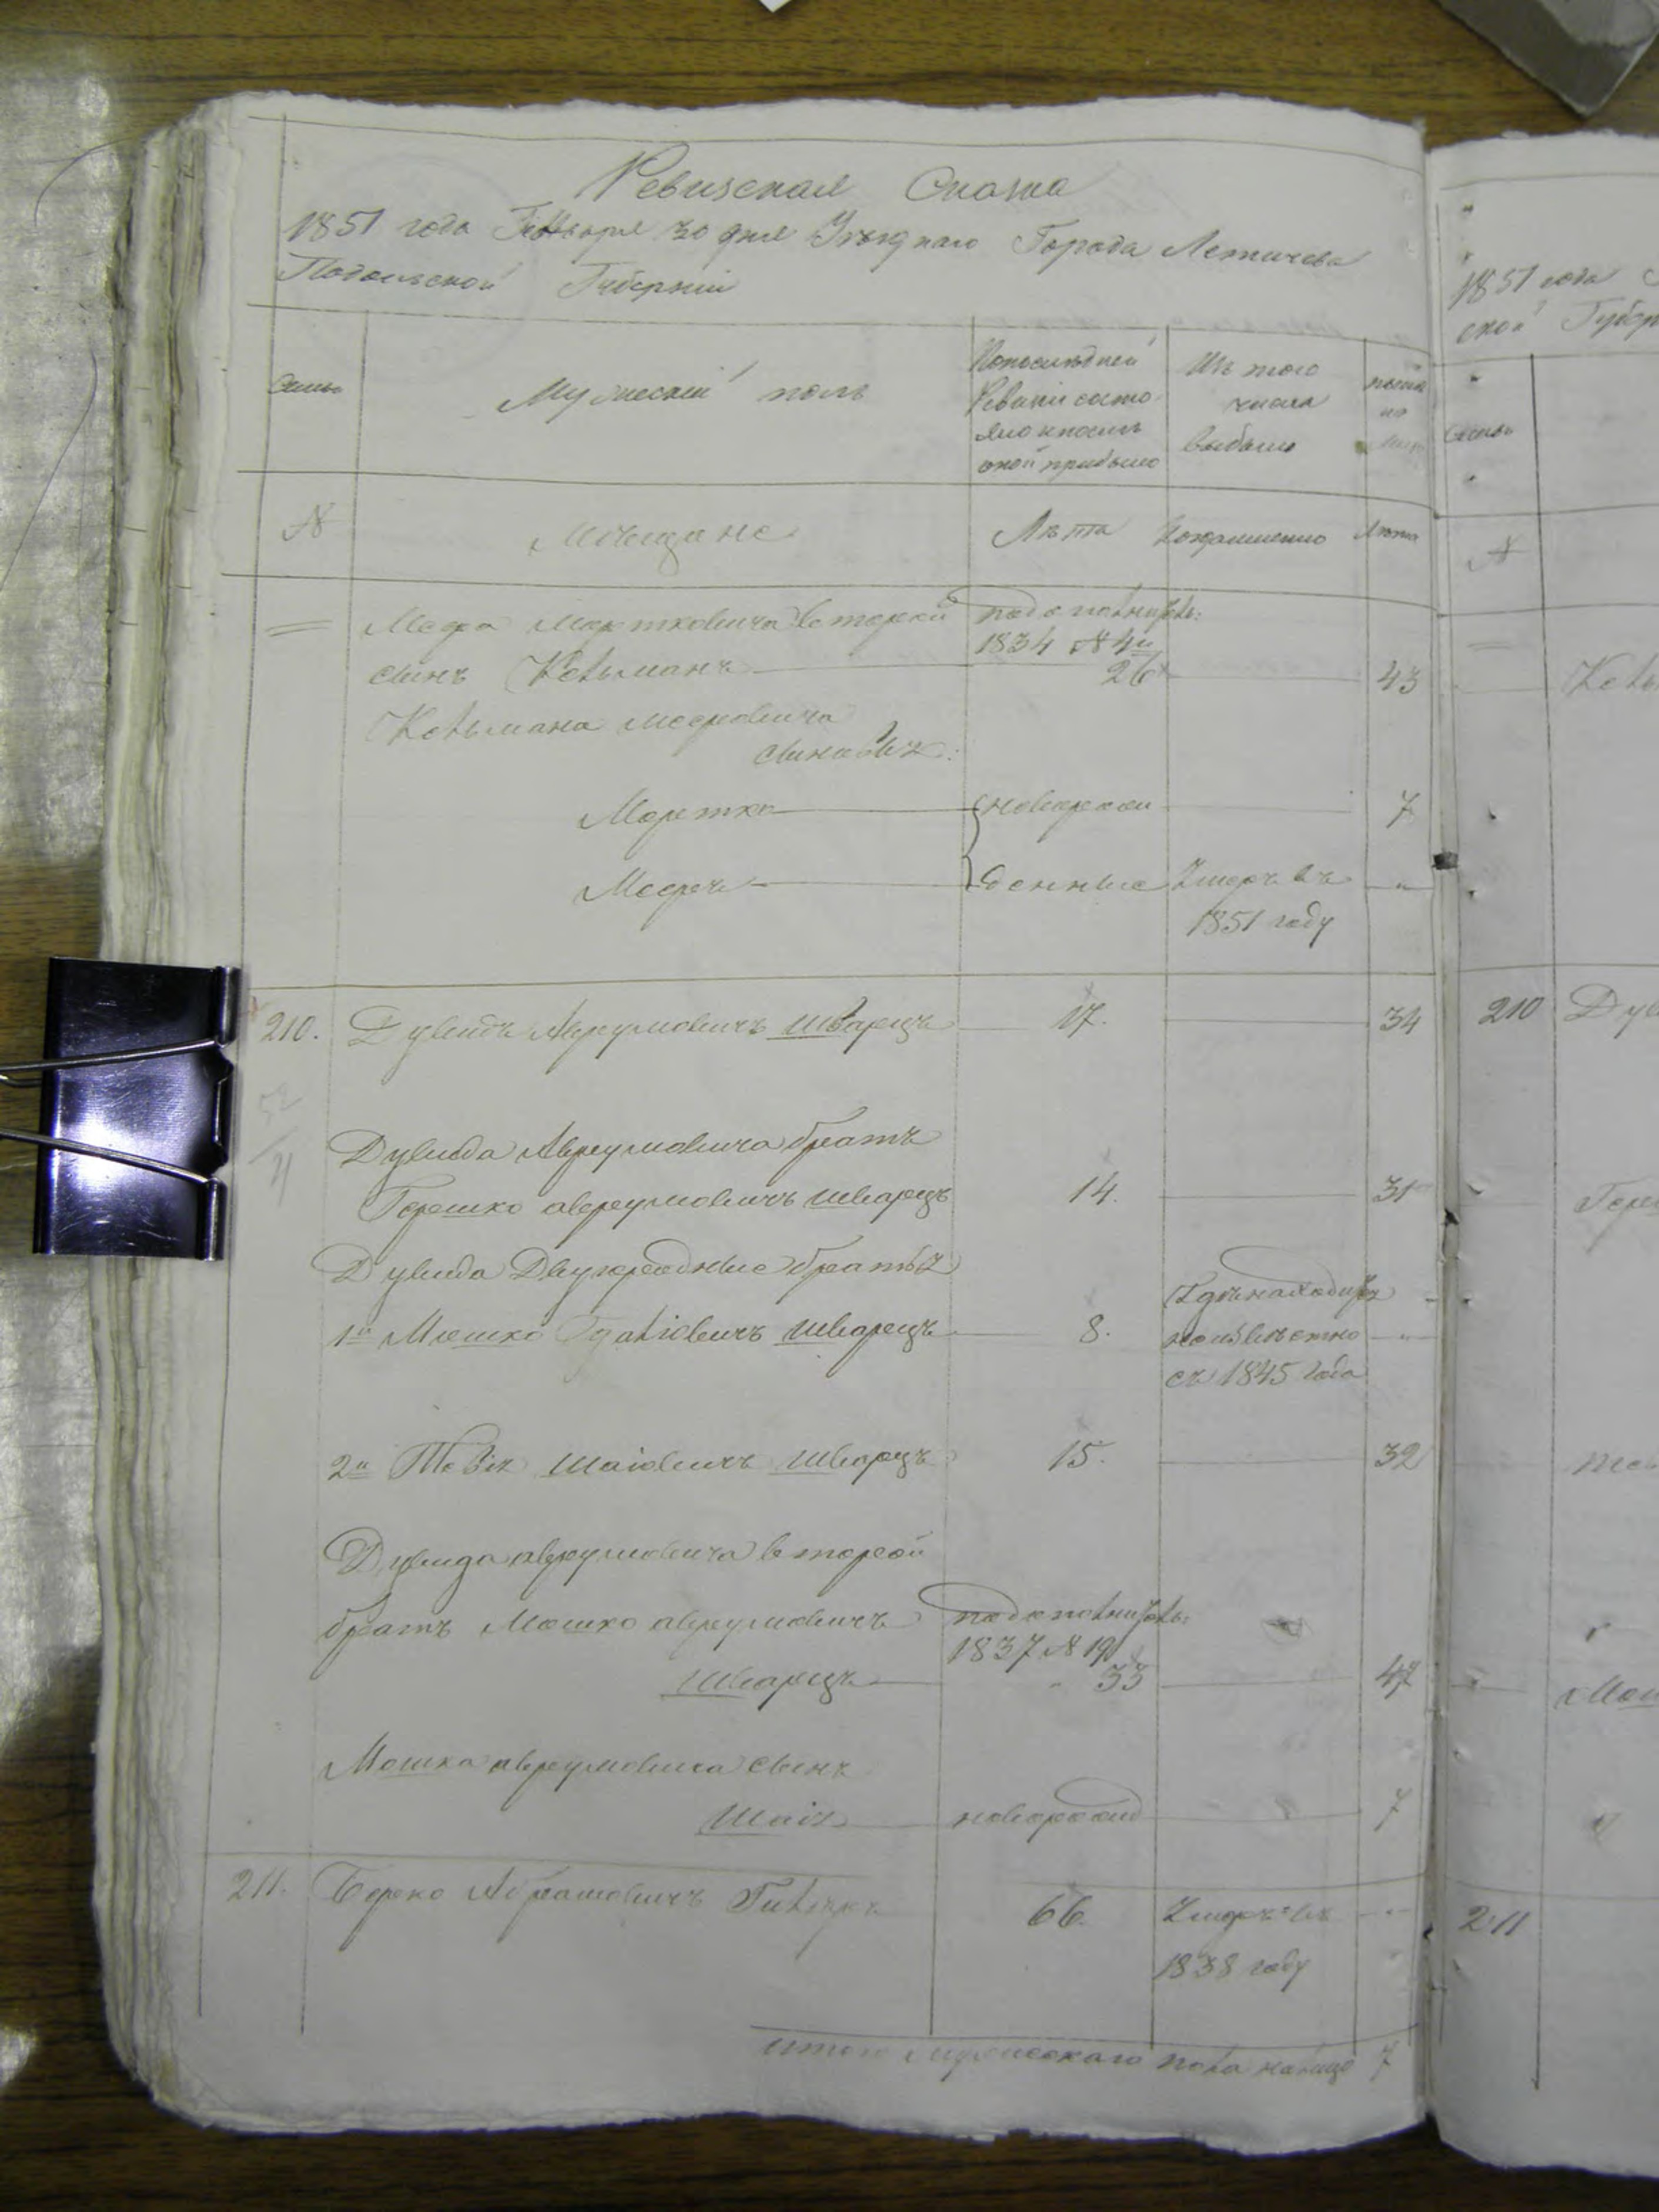 Ревизская Сказка
1851 года Генваря 30 дня Уезднаго Города Летичева
Подольской Губерніи
Семьи
Мужескій полъ
По последней Ревизіи состояло и после оной прибыло
Изъ того числа выбыло
ныне на лицо
№
Мещане
Лета
Когда именно
Лета
Меера Мортковича второй
сынъ Кельманъ
по дополнитель:
1834 № 4й
26
43
Кельмана Мееровича
сыновья:
Мортко
новорож
7
Мееръ
денные
Умеръ въ
1851 году
"
210.
Дувидъ Аврумовичъ Шварцъ
17.
34
Дувида Аврумовича братъ
Гершко Аврумовичъ Шварцъ
14.
31
Дувида Двухродные братья
1й Мошко Шварцъ
8.
Где находится
неизвестно
съ 1845 года
"
2й Тевія Шаіовичъ Шварцъ
15.
32
Дувида Аврумовича второй
братъ Мошко Аврумовичъ
Шварцъ
по дополнитель:
1837 № 19
33
47
Мошка Аврумовича сынъ
Шаія
новорожд
7
211.
Берко Абрамовичъ
66.
Умеръ въ
1838 году
"
итого мужескаго пола налицо 7
1851 года
ской Губер
Семьи
№
Кель
210
Дув
Гер
Тев
Мош
211